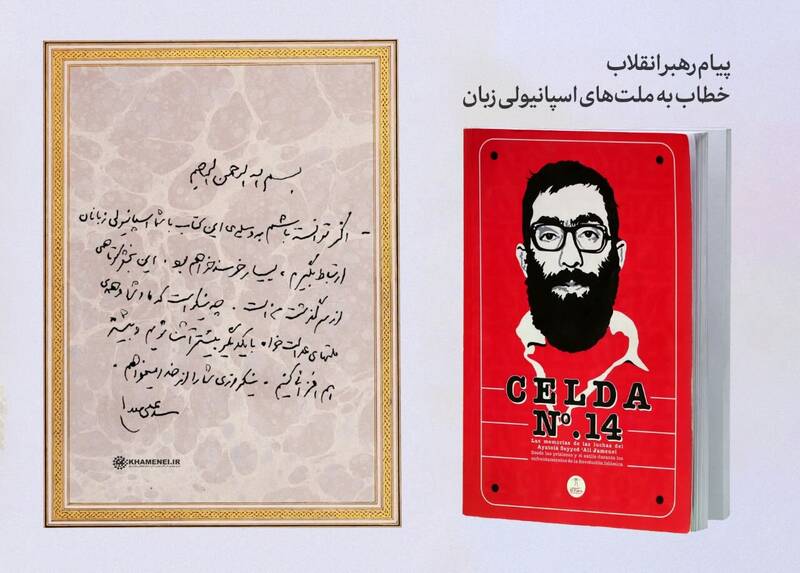 پیام رهبر انقلاب
خطاب به ملت‌های اسپانیولی زبان
بسم الله الرحمن الرحیم
- اگر توانسته باشم به وسیله‌ی این کتاب با شما اسپانیولی زبانان
ارتباط بگیرم، بسیار خرسند خواهم بود. این بخش کوتاهی
از سرگذشت من است. چه نیکو است که ما و شما و همه‌ی
ملتهای عدالت‌خواه با یکدیگر بیشتر آشنا شویم و بیشتر
هم افزائی کنیم. نیکروزی شما را از خدا میخواهم.
سید علی خامنه‌ای
KHAMENEI.IR
CELDA
Nº.14
Las memorias de las luchas del
Ayatolá Seyyed 'Alí Jamenei
Desde las prisiones y el exilio durante los
enfrentamientos de la Revolución Islámica